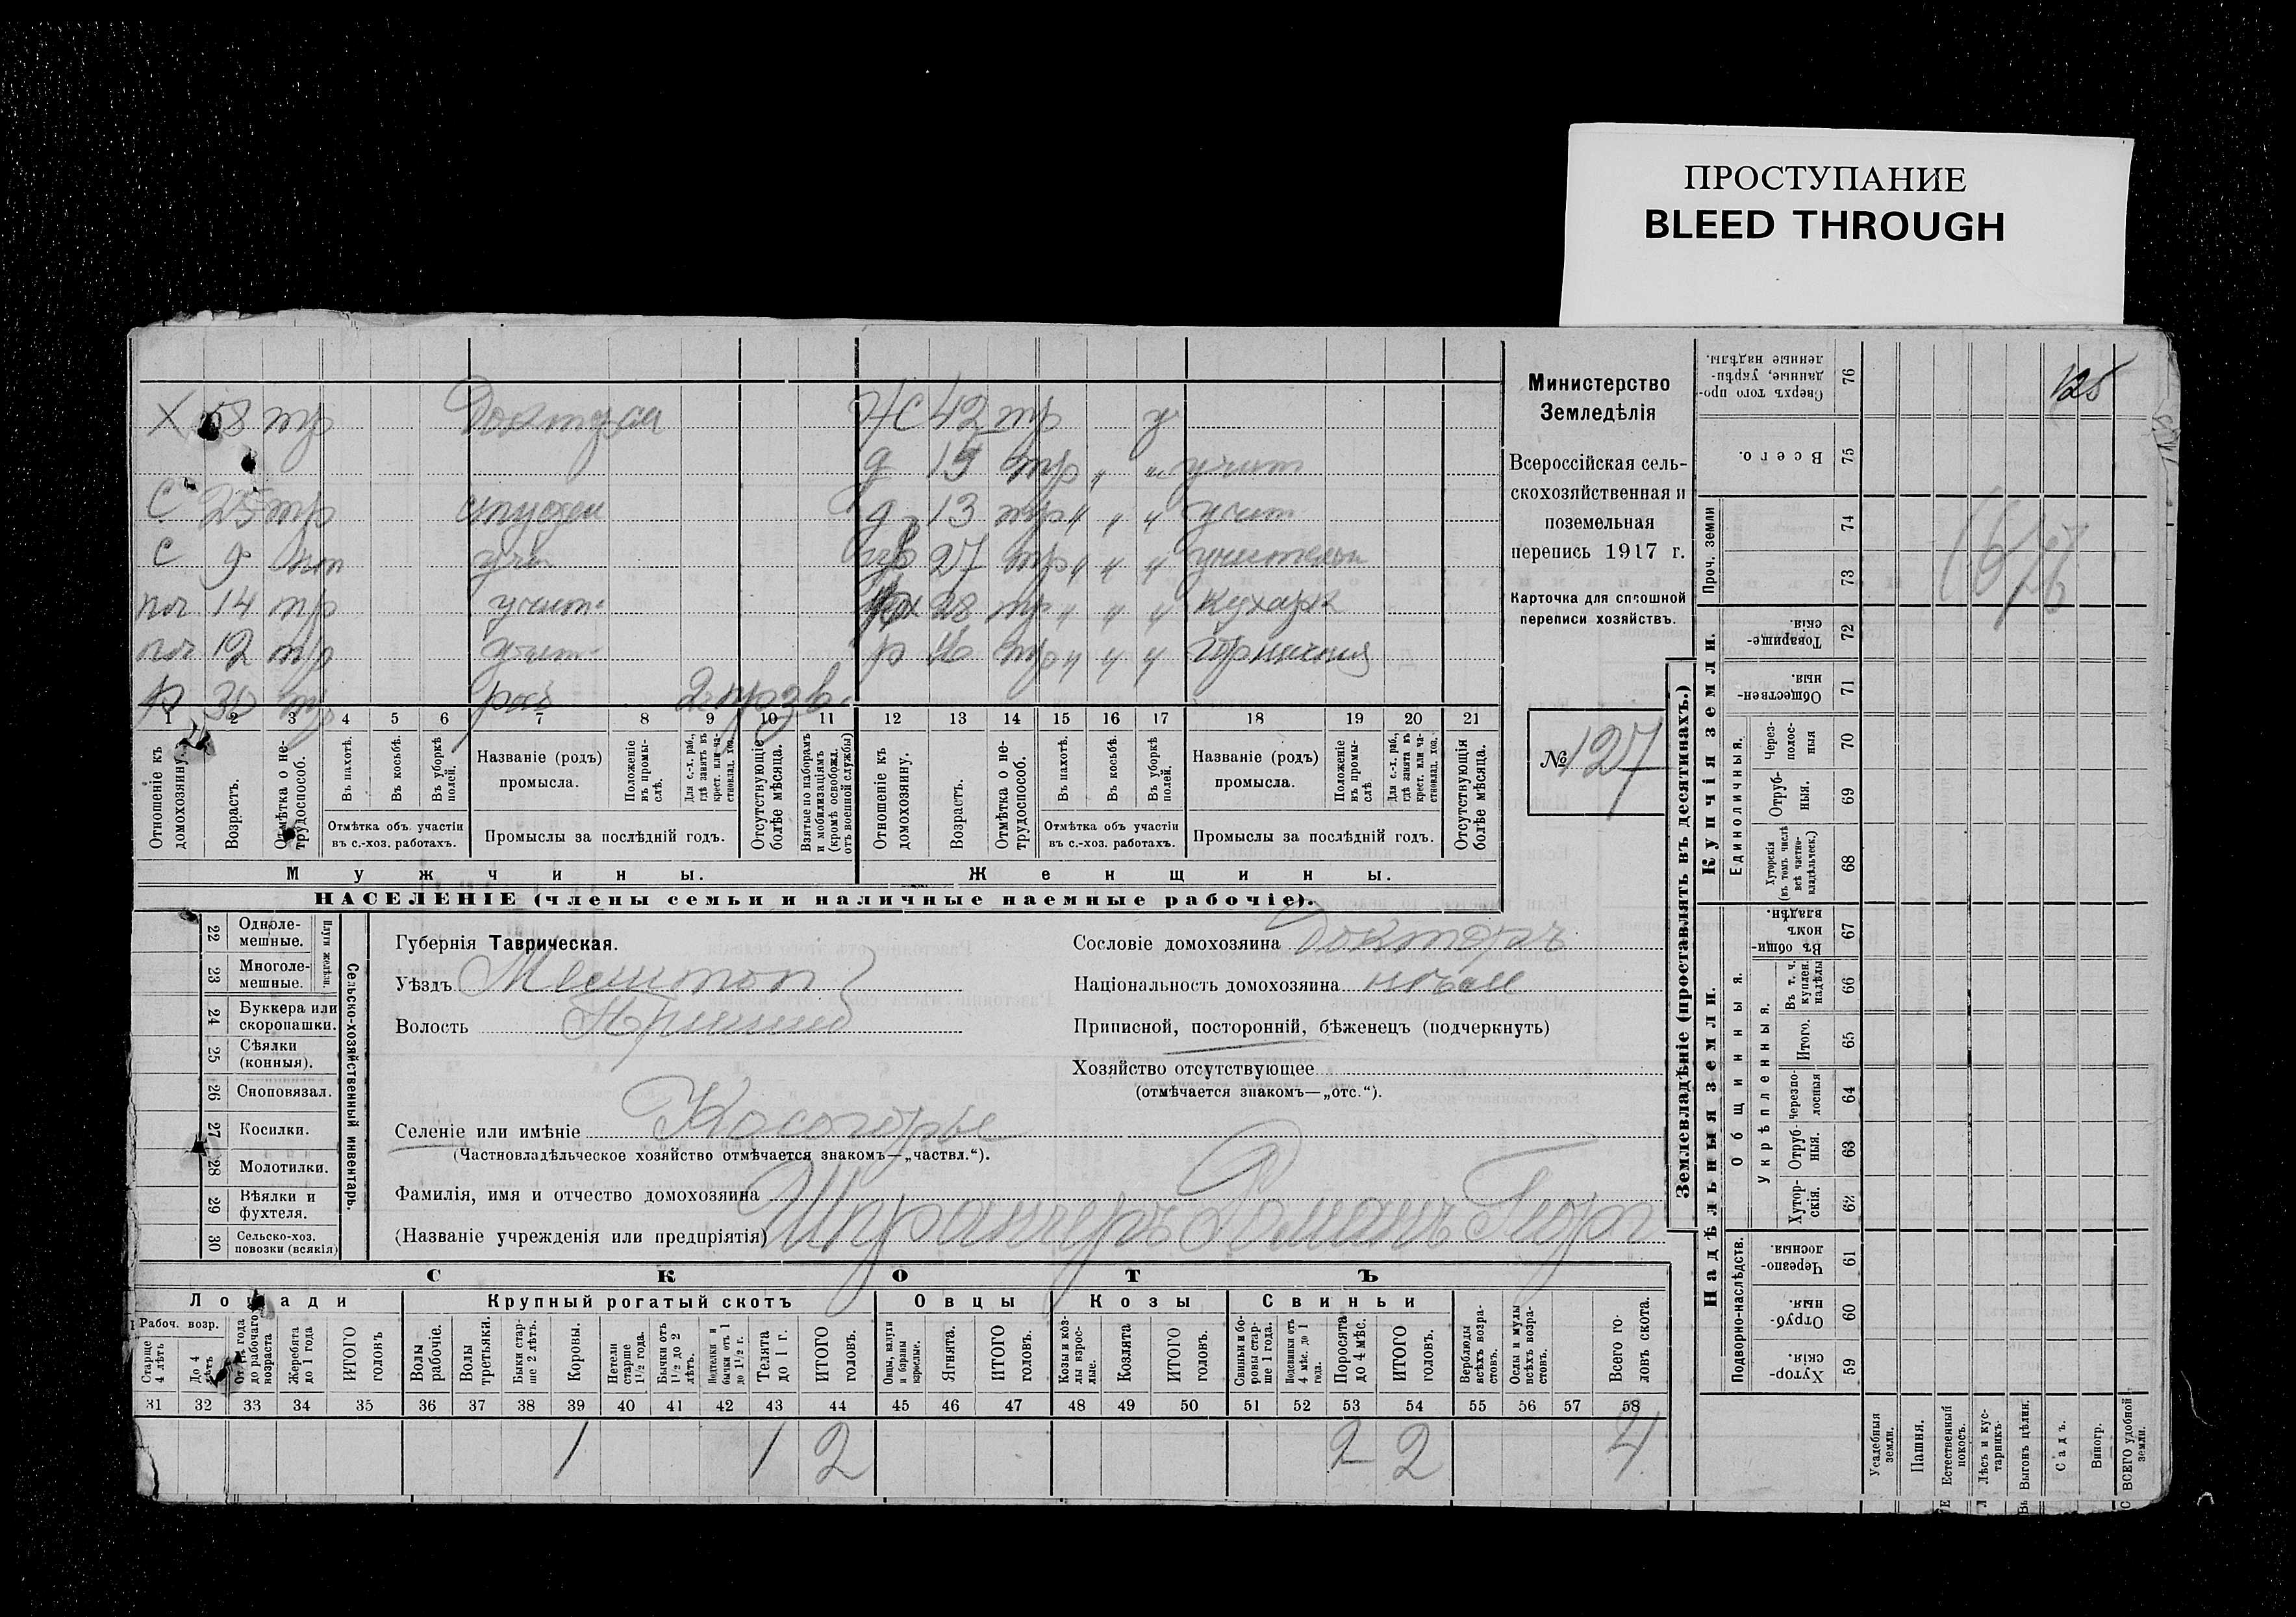 ПРОСТУПАНИЕ
BLEED THROUGH
Х 58 тр Доктор
С 25 тр студен
С 9 уч
14 тр учит
12 тр учит
р 30 тр раб
1 2 3 4 5 6 7 8 9 10 11
Отношеніе къ домохозяину.
Возрастъ.
Отмѣтка о не-трудоспособ.
Въ пахотѣ.
Въ косьбѣ.
Въ уборкѣ полей.
Отмѣтка объ участіи
въ с.-хоз. работахъ.
Названіе (родъ)
промысла.
Положеніе въ промы-слѣ.
Для с.-х. раб., гдѣ занятъ въ крест. или ча-стновлад. хоз.
Промыслы за послѣдній годъ.
Отсутствующіе болѣе мѣсяца.
Взятые по наборамъ и мобилизаціямъ (кромѣ освобожд. отъ военной службы)
Мужчины.
ЖС 42 тр у
д 15 тр " " учит
д 13 тр " " " учит
27 тр " " " учительн
28 тр " " " Кухарк
р 16 тр " " " Горничная
12 13 14 15 16 17 18 19 20 21
Отношеніе къ домохозяину.
Возрастъ.
Отмѣтка о не-трудоспособ.
Въ пахотѣ.
Въ косьбѣ.
Въ уборкѣ полей.
Отмѣтка объ участіи
въ с.-хоз. работахъ.
Названіе (родъ)
промысла.
Положеніе въ промы-слѣ
Для с.-х. раб., гдѣ занята въ крест. или ча-стновлад. хоз.
Промыслы за послѣдній годъ.
Отсутствующія болѣе мѣсяца.
Женщины.
НАСЕЛЕНІЕ (члены семьи и наличные наемные рабочіе).
Министерство
Земледѣлія
Всероссійская сель-
скохозяйственная и
поземельная
перепись 1917 г.
Карточка для сплошной
переписи хозяйствъ.
№ 127
22 Одноле-мешные.
23 Многоле-мешные.
Плуги желѣзн.
24 Буккера или скоропашки.
25 Сѣялки (конныя).
26 Сноповязал.
27 Косилки.
28 Молотилки.
29 Вѣялки и фухтеля.
30 Сельско-хоз. повозки (всякія)
Сельско-хозяйственный инвентарь.
Губернія Таврическая.
Уѣздъ Мелитоп
Волость Пришиб
Селеніе или имѣніе Косогорье
(Частновладѣльческое хозяйство отмѣчается знакомъ—„частвл.“).
Фамилія, имя и отчество домохозяина
(Названіе учрежденія или предпріятія) Романъ Георг
Сословіе домохозяина Докторъ
Національность домохозяина нѣмец
Приписной, посторонній, бѣженецъ (подчеркнуть)
Хозяйство отсутствующее
(отмѣчается знакомъ—„отс.“).
СКОТЪ
Лошади
Рабоч. возр.
Старше 4 лѣтъ
До 4 лѣтъ
Отъ 1 года до рабочаго возраста
Жеребята до 1 года
ИТОГО головъ
Крупный рогатый скотъ
Волы рабочіе.
Волы третьяки.
Быки стар-ше 2 лѣтъ.
Коровы.
Нетели старше 1½ года.
Бычки отъ 1½ до 2 лѣтъ.
Подтелки и бычки отъ 1 до 1½ г.
Телята до 1 г.
ИТОГО головъ.
Овцы
Овцы, валухи и бараны взрослые.
Ягнята.
ИТОГО головъ.
Козы
Козы и коз-лы взрос-лые.
Козлята
ИТОГО головъ.
Свиньи
Свиньи и бо-ровы стар-ше 1 года.
Подсвинки отъ 4 мѣс. до 1 года.
Поросята до 4 мѣс.
ИТОГО головъ.
Верблюды всѣхъ возра-стовъ.
Ослы и мулы всѣхъ возра-стовъ.
Всего го-ловъ скота.
31 32 33 34 35 36 37 38 39 40 41 42 43 44 45 46 47 48 49 50 51 52 53 54 55 56 57 58
1 1 2 2 2 4
Землевладѣніе (проставлять въ десятинахъ.)
Надѣльныя земли.
Подворно-наслѣдств.
Хутор-скія. 59
Отруб-ныя. 60
Черезпо-лосныя. 61
Общинныя.
Укрѣпленныя.
Хутор-скія. 62
Отруб-ныя. 63
Черезпо-лосныя 64
Итого. 65
Въ т. ч. куплен. надѣлы 66
Въ общи-номъ владѣн. 67
Купчія земли.
Единоличныя.
Хуторскія (въ томъ числѣ всѣ частно-владѣльческ.) 68
Отруб-ныя. 69
Через-полос-ныя 70
Обществен-ныя. 71
Товарище-скія. 72
Проч. земли
73
74
Всего. 75
Сверхъ того про-данные, укрѣп-ленные надѣлы. 76
Усадебныя земли.
Пашня.
Естественный покосъ.
Лѣсъ и кус-тарникъ.
Выгонъ цѣлин.
Садъ.
Виногр.
ВСЕГО удобной земли.
125